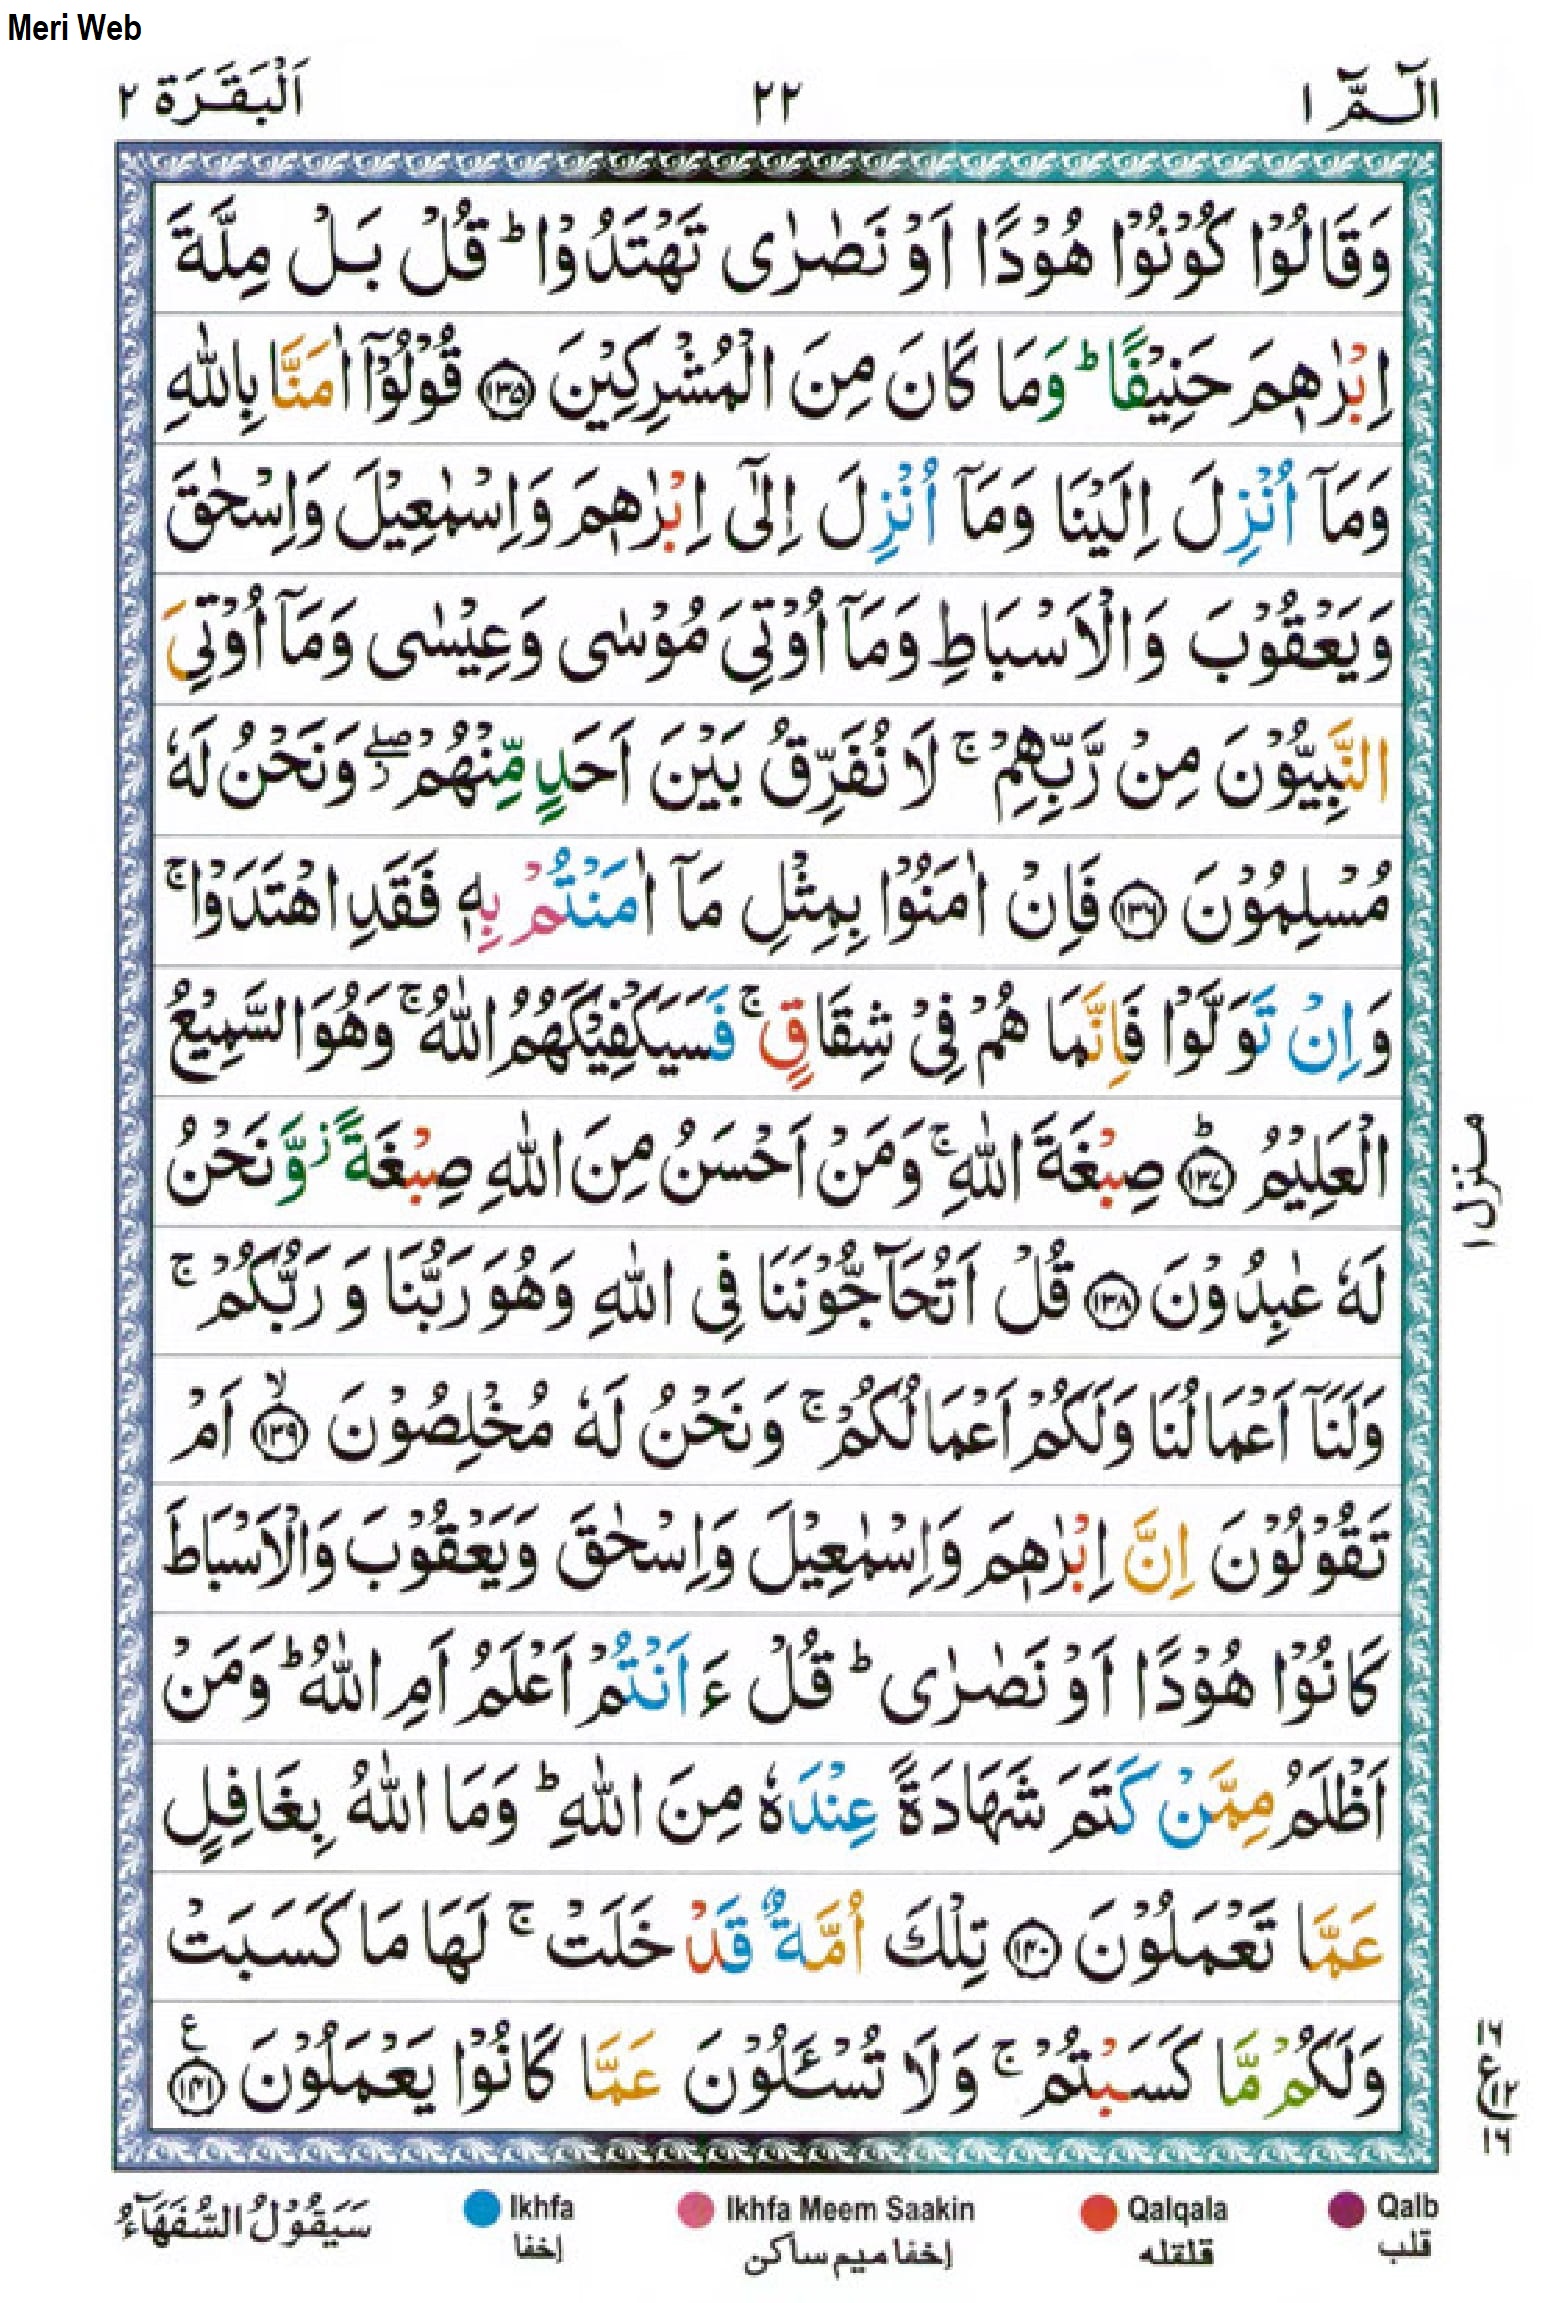 Meri Web
الٓـمّٓ ١
٢٢
اَلْبَقَرَة ٢
وَقَالُوْا كُوْنُوْا هُوْدًا اَوْ نَصٰرٰى تَهْتَدُوْا ؕ قُلْ بَلْ مِلَّةَ
اِبْرٰهٖمَ حَنِيْفًا ؕ وَمَا كَانَ مِنَ الْمُشْرِكِيْنَ ۝۱۳۵ قُوْلُوْٓا اٰمَنَّا بِاللّٰهِ
وَمَآ اُنْزِلَ اِلَيْنَا وَمَآ اُنْزِلَ اِلٰٓى اِبْرٰهٖمَ وَاِسْمٰعِيْلَ وَاِسْحٰقَ
وَيَعْقُوْبَ وَالْاَسْبَاطِ وَمَآ اُوْتِيَ مُوْسٰى وَعِيْسٰى وَمَآ اُوْتِيَ
النَّبِيُّوْنَ مِنْ رَّبِّهِمْ ۚ لَا نُفَرِّقُ بَيْنَ اَحَدٍ مِّنْهُمْ ۖ وَنَحْنُ لَهٗ
مُسْلِمُوْنَ ۝۱۳۶ فَاِنْ اٰمَنُوْا بِمِثْلِ مَآ اٰمَنْتُمْ بِهٖ فَقَدِ اهْتَدَوْا ۚ
وَاِنْ تَوَلَّوْا فَاِنَّمَا هُمْ فِيْ شِقَاقٍ ۚ فَسَيَكْفِيْكَهُمُ اللّٰهُ ۚ وَهُوَ السَّمِيْعُ
الْعَلِيْمُ ؕ۝۱۳۷ صِبْغَةَ اللّٰهِ ۚ وَمَنْ اَحْسَنُ مِنَ اللّٰهِ صِبْغَةً ؗ وَّنَحْنُ
لَهٗ عٰبِدُوْنَ ۝۱۳۸ قُلْ اَتُحَآجُّوْنَنَا فِي اللّٰهِ وَهُوَ رَبُّنَا وَرَبُّكُمْ ۚ
وَلَنَآ اَعْمَالُنَا وَلَكُمْ اَعْمَالُكُمْ ۚ وَنَحْنُ لَهٗ مُخْلِصُوْنَ ۙ۝۱۳۹ اَمْ
تَقُوْلُوْنَ اِنَّ اِبْرٰهٖمَ وَاِسْمٰعِيْلَ وَاِسْحٰقَ وَيَعْقُوْبَ وَالْاَسْبَاطَ
كَانُوْا هُوْدًا اَوْ نَصٰرٰى ؕ قُلْ ءَاَنْتُمْ اَعْلَمُ اَمِ اللّٰهُ ؕ وَمَنْ
اَظْلَمُ مِمَّنْ كَتَمَ شَهَادَةً عِنْدَهٗ مِنَ اللّٰهِ ؕ وَمَا اللّٰهُ بِغَافِلٍ
عَمَّا تَعْمَلُوْنَ ۝۱۴۰ تِلْكَ اُمَّةٌ قَدْ خَلَتْ ۚ لَهَا مَا كَسَبَتْ
وَلَكُمْ مَّا كَسَبْتُمْ ۚ وَلَا تُسْـَٔلُوْنَ عَمَّا كَانُوْا يَعْمَلُوْنَ ۝۱۴۱ ع
منزل ١
١٦
ع ١٢
١٦
Qalb
قلب
Qalqala
قلقله
Ikhfa Meem Saakin
إخفا ميم ساكن
Ikhfa
إخفا
سَيَقُوْلُ السُّفَهَآءُ